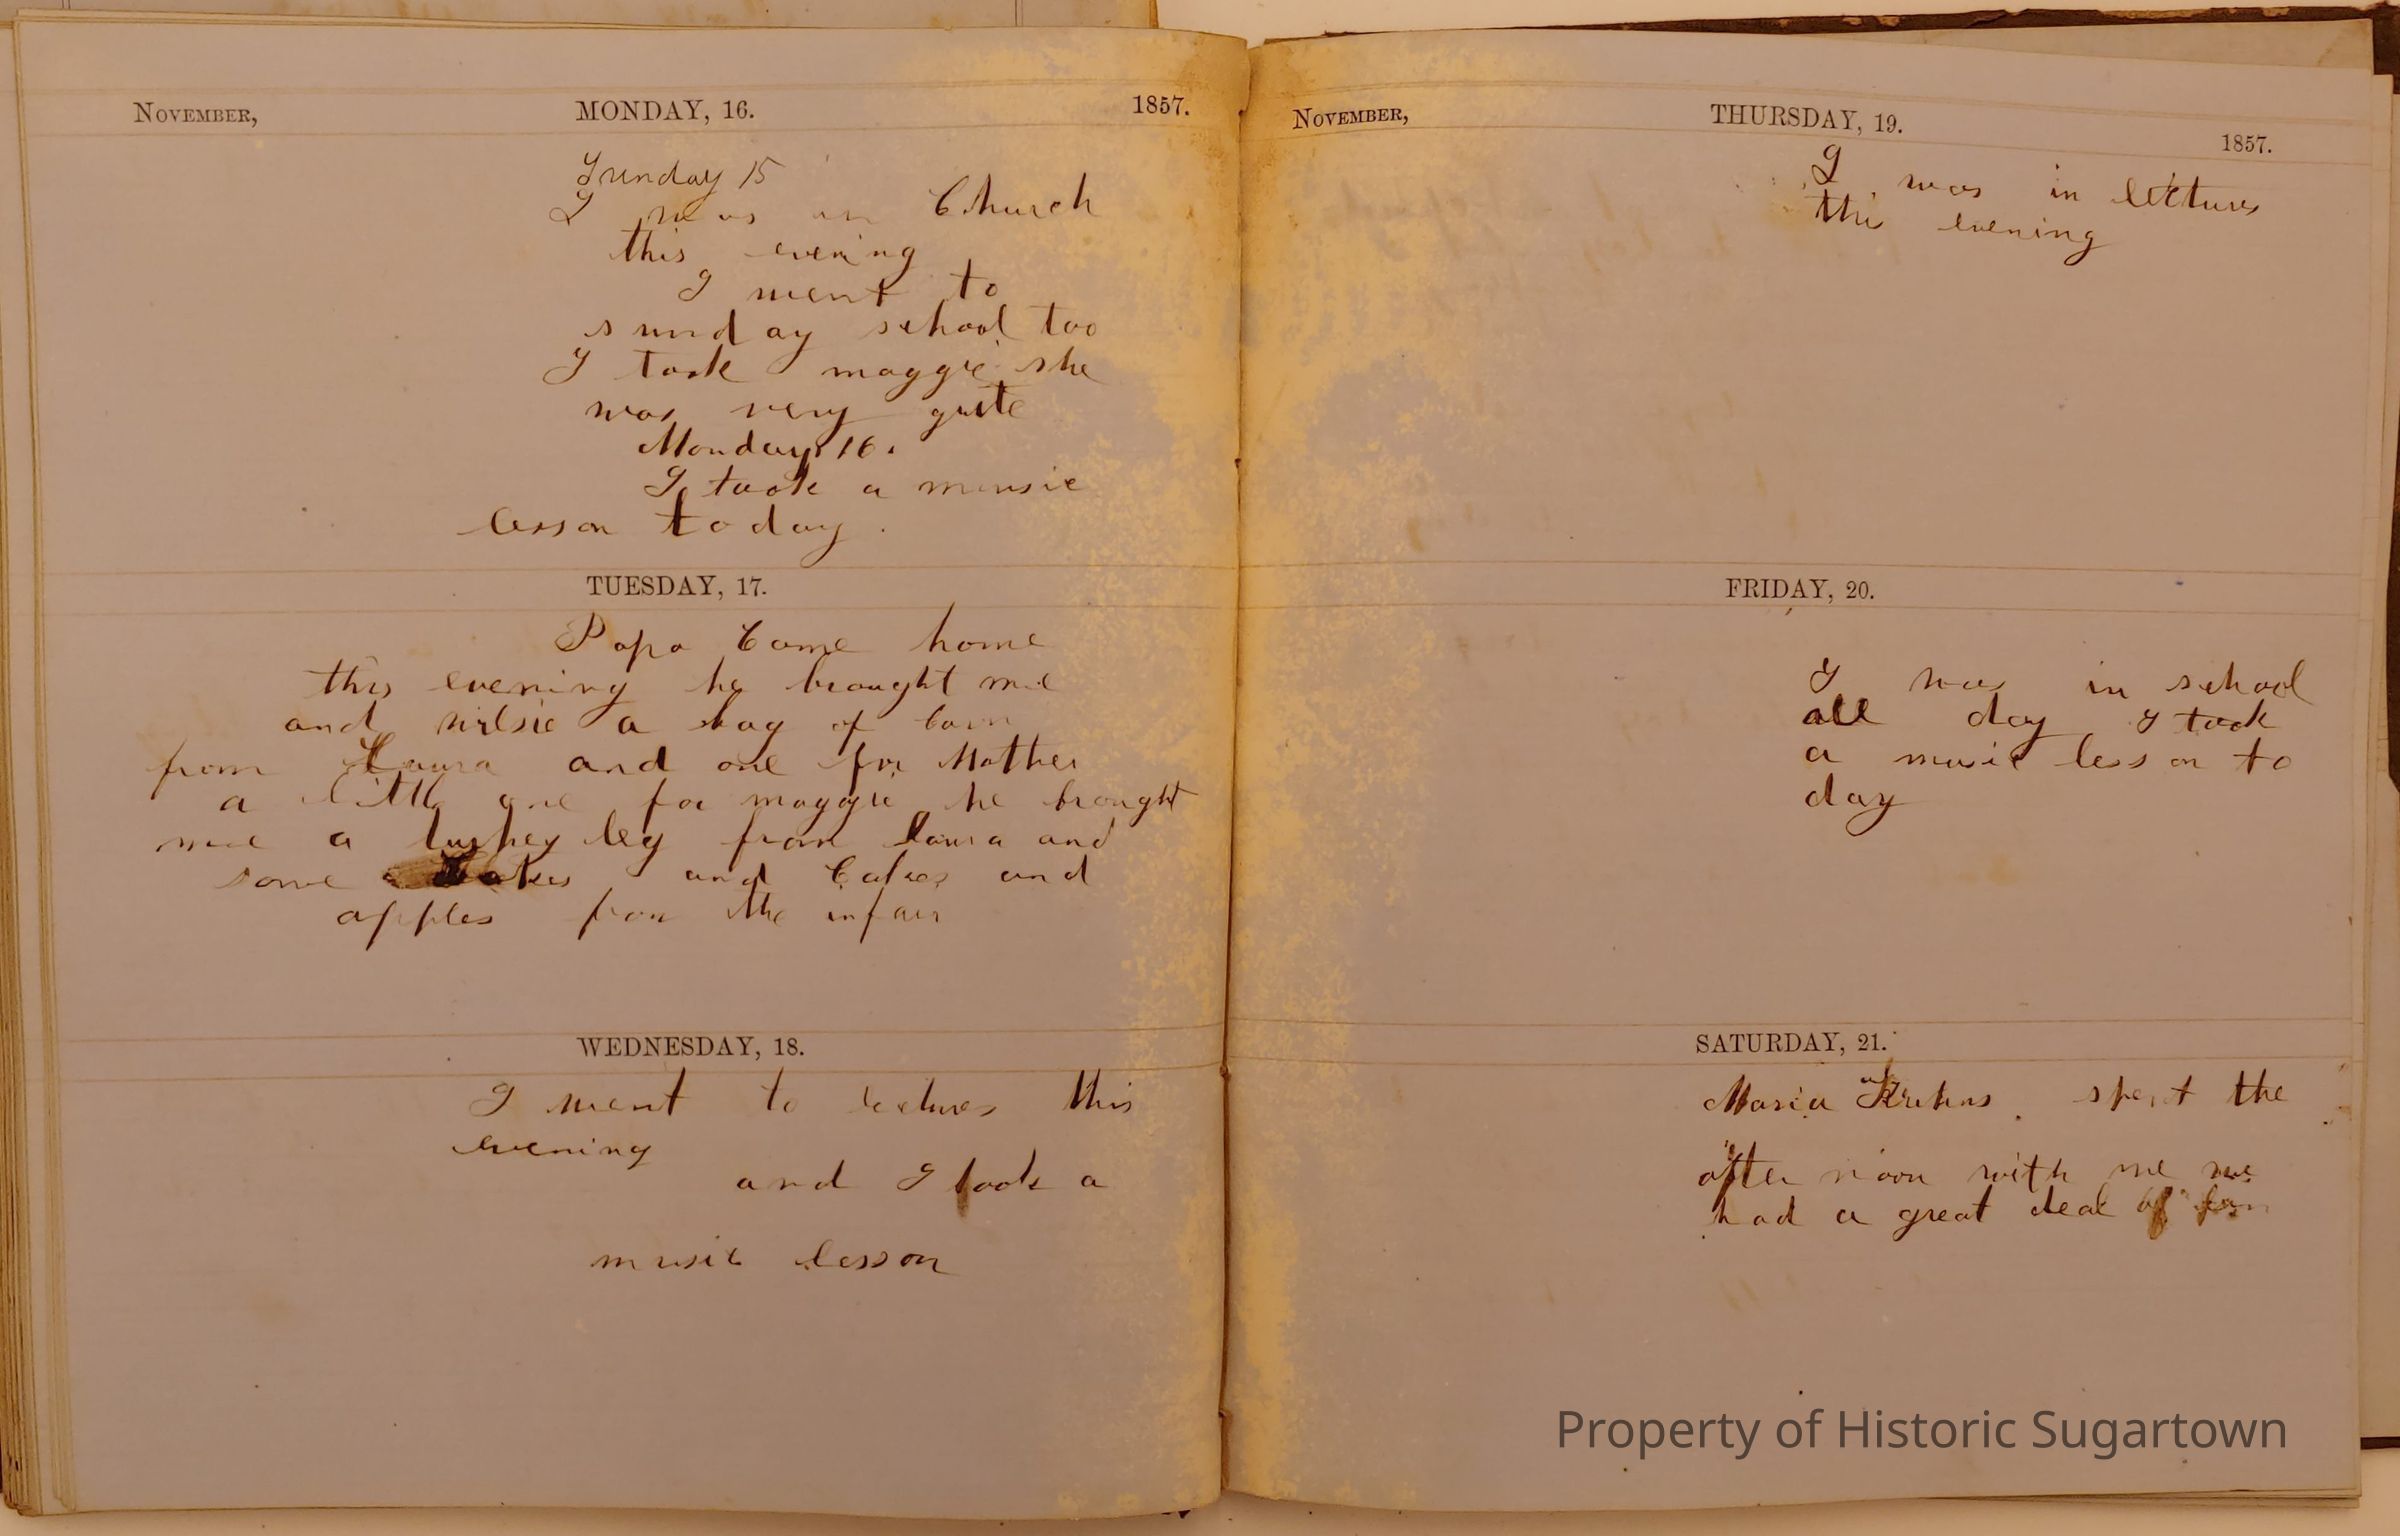 NOVEMBER, MONDAY, 16. 1857.
Sunday 15
I was in Church
this evening
I went to
sunday school too
I took maggie she
was very quite
Monday 16.
I took a munsic
lesson today.
TUESDAY, 17.
Papa Came home
this evening he brought me
and a bag of
from Laura and one for Mother
a little one for maggie he brought
me a turkey leg from Laura and
some and Cakes and
apples from the infair
WEDNESDAY, 18.
I went to lectures this
evening
and I took a
music lesson
NOVEMBER, THURSDAY, 19. 1857.
I was in lectures
this evening
FRIDAY, 20.
I was in school
all day I took
a music lesson to
day
SATURDAY, 21.
Maria spent the
after noon with me we
had a great deal of fun
Property of Historic Sugartown